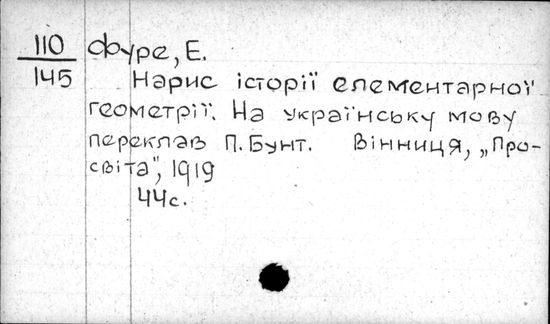 110 Фуре, Е.
145 Нарис історії елементарної
геометрії. На українську мову
переклав П. Бунт. Вінниця, „Про-
світа", 1919
44с.